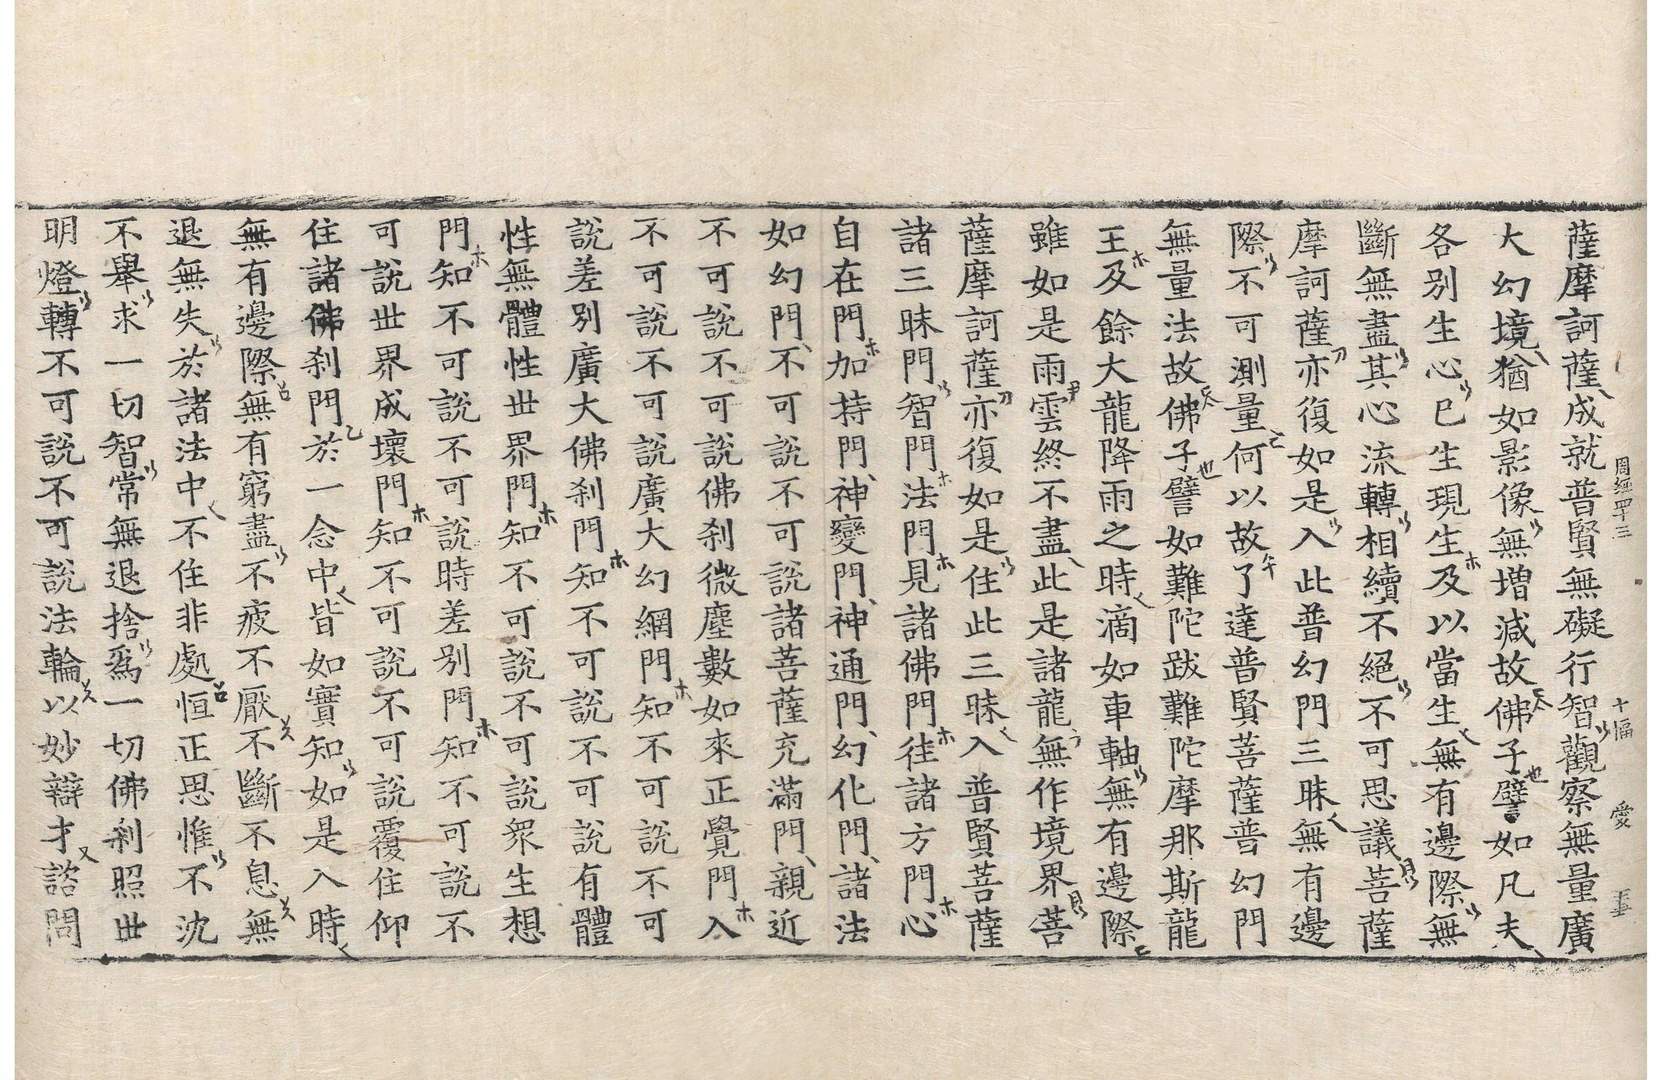 薩摩訶薩成就普賢無礙行智觀察無量廣
大幻境猶如影像無增減故佛子譬如凡夫
各別生心已生現生及以當生無有邊際無
斷無盡其心流轉相續不絕不可思議菩薩
摩訶薩亦復如是入此普幻門三昧無有邊
際不可測量何以故了達普賢菩薩普幻門
無量法故佛子譬如難陀跋難陀摩那斯龍
王及餘大龍降雨之時滴如車軸無有邊際
雖如是雨雲終不盡此是諸龍無作境界菩
薩摩訶薩亦復如是住此三昧入普賢菩薩
諸三昧門智門法門見諸佛門徃諸方門心
自在門加持門神變門神通門幻化門諸法
如幻門不可說不可說諸菩薩充滿門親近
不可說不可說佛刹微塵數如來正覺門入
不可說不可說廣大幻網門知不可說不可
說差別廣大佛刹門知不可說不可說有體
性無體性世界門知不可說不可說衆生想
門知不可說不可說時差別門知不可說不
可說世界成壞門知不可說不可說覆住仰
住諸佛刹門於一念中皆如實知如是入時
無有邊際無有窮盡不疲不厭不斷不息無
退無失於諸法中不住非處恒正思惟不沈
不舉求一切智常無退捨爲一切佛刹照世
明燈轉不可說不可說法輪以妙辯才諮問
周經四十三
十幅
愛